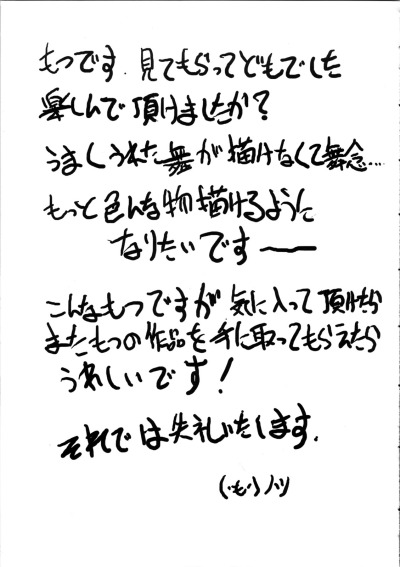 もつです.見てもらってどもでした
楽しんで頂けましたか?
うまくうれた舞が描けなくて無念…
もっと色んな物描けるように
なりたいです──
こんなもつですが気に入って頂けたら
またもつの作品を手に取ってもらえたら
うれしいです!
それでは失礼いたします.